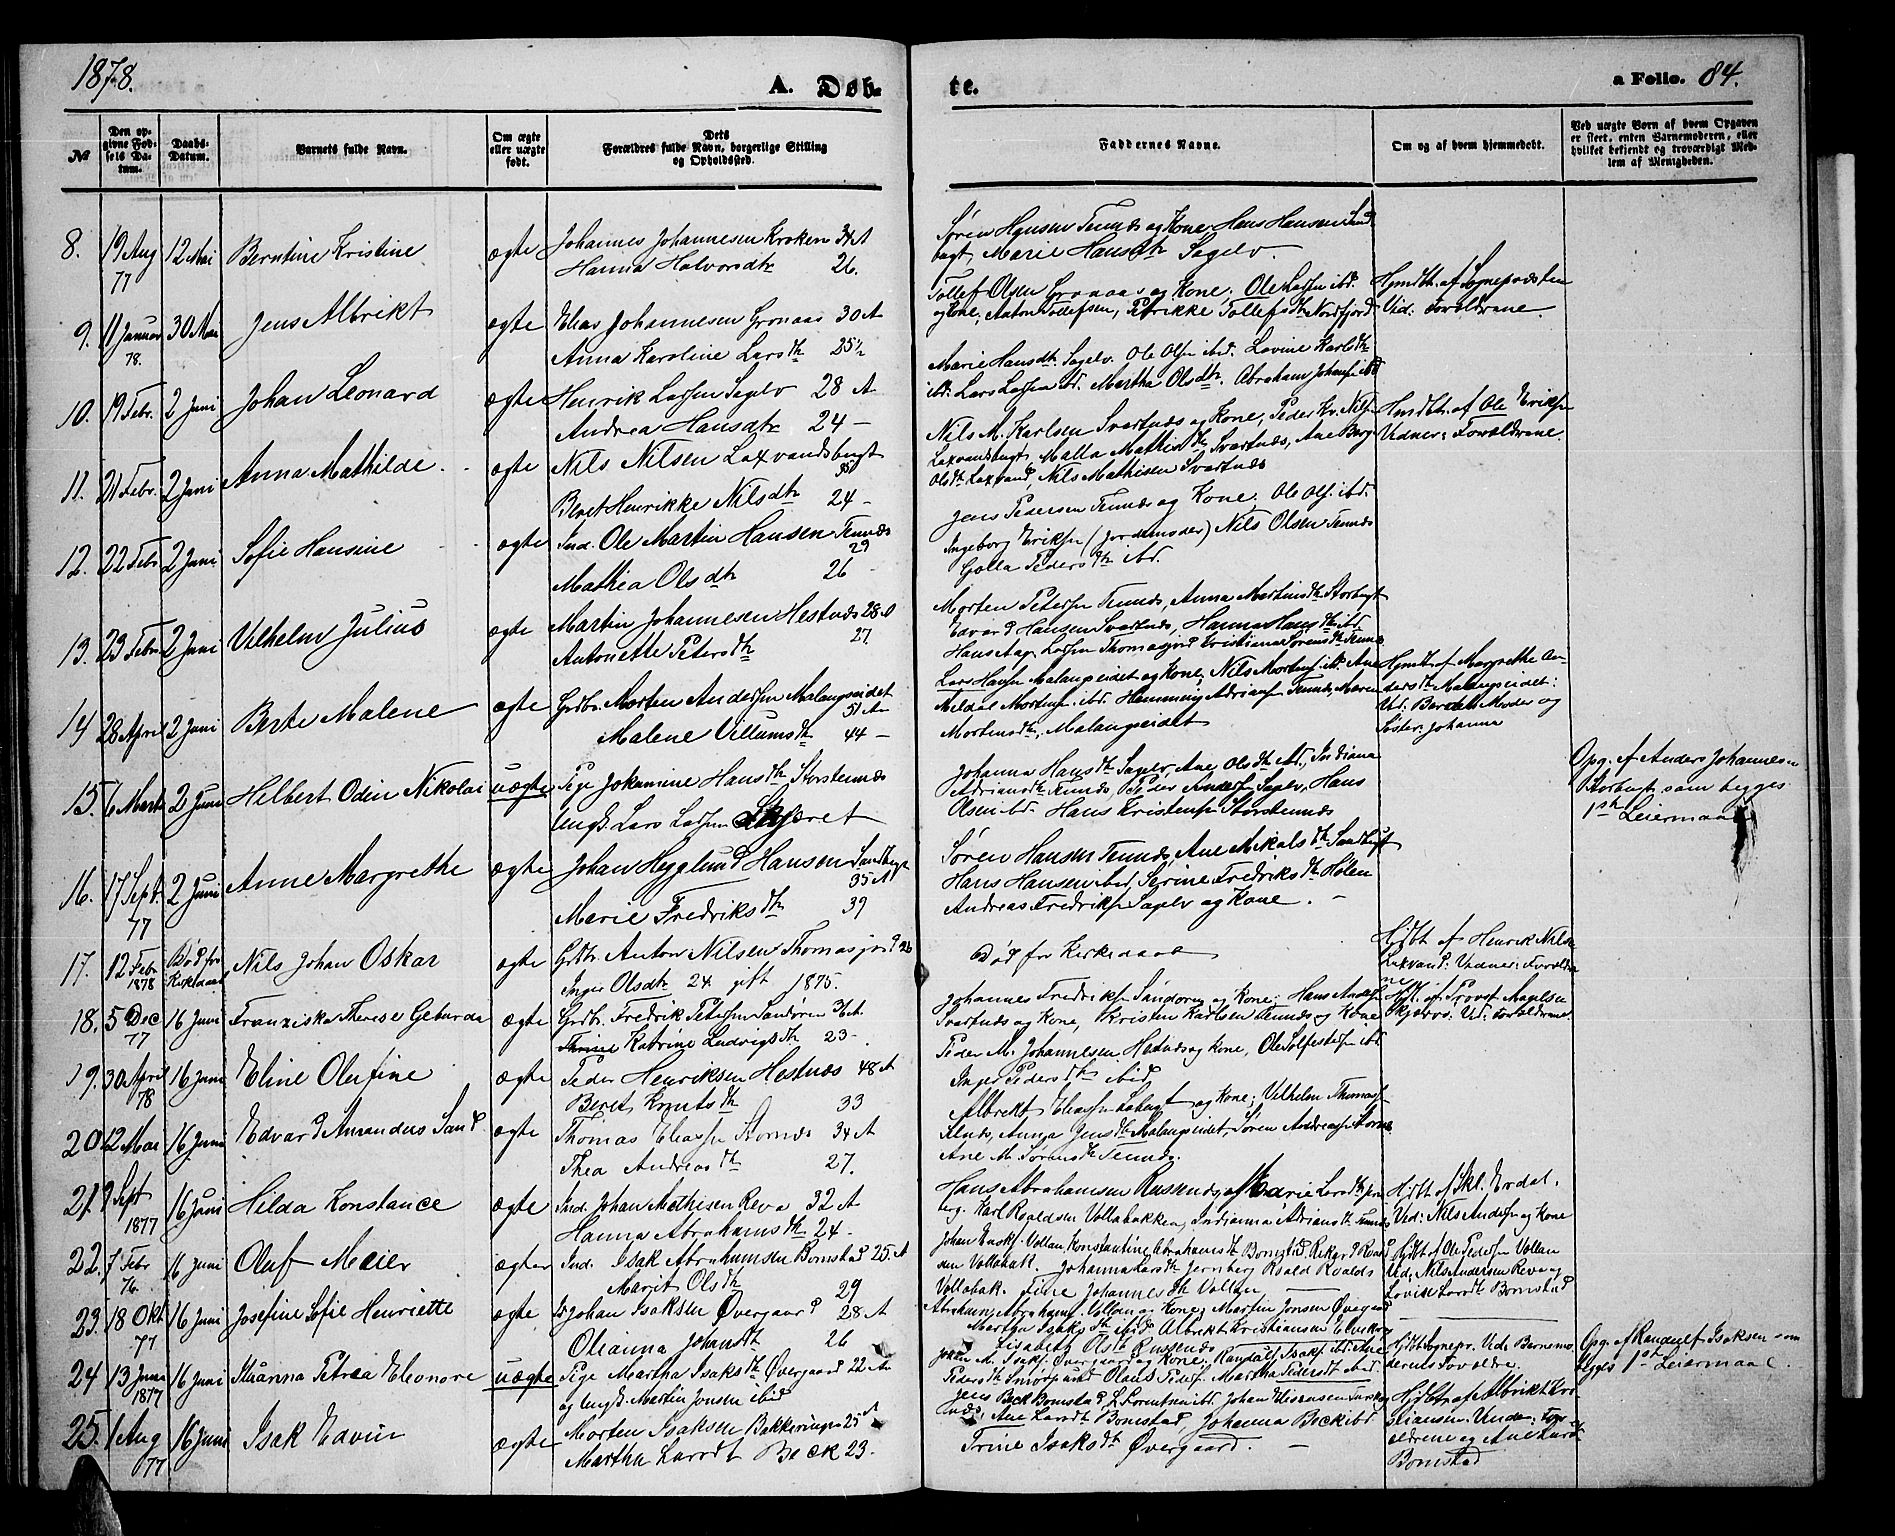 1878.
A. Døb-
te.
a Folio. 84.
№
Den op-
givne Fød-
sels Da-
tum.
Daabs-
Datum.
Barnets fulde Navn.
Om ægte
eller uægte
født.
Dets
Forældres fulde Navn, borgerlige Stilling
og Opholdssted.
Faddernes Navne.
Om og af hvem hjemmedøbt.
Ved uægte Børn af hvem Opgaven
er skeet, enten Barnemoderen, eller
hvilket bekjendt og troværdigt Med-
lem af Menigheden.
8. 19 Aug 77 12 Mai Berntine Kristine ægte Johannes Johannesen Kroken 34 A
Hanna Halvorsdtr 26.
Søren Hansen Tennes og Kone, Hans Hansen Sand
bugt, Marie Hansdtr Sagelv.
9. 11 Januar 78. 30 Mai Jens Albrikt ægte Elias Johannesen Grønaas 30 A
Anna Karoline Larsdtr 25½
Tollef Olsen Grønaas og Kone. Ole Larsen ibd.
og Kone, Anton Tollefsen, Petrikke Tollefsdtr Nordfjord
Hjmdbt. af Sognepræsten
Vid: Forældrene.
10. 19 Febr. 2 Juni Johan Leonard ægte Henrik Larsen Sagelv 28 A
Andrea Hansdtr 24 –
Marie Hansdtr. Sagelv. Ole Olsen ibd. Lovine Karlsdtr
ibd. Lars Larsen ibd. Martha Olsdtr. Abraham Johans. ibd
11. 21 Febr. 2 Juni Anna Mathilde. ægte Nils Nilsen Laxvandsbugt
Beret Henrikke Nilsdtr 24 –
Nils M. Karlsen Svartnæs og Kone, Peder Kr. Nils.
Laxvandsbugt, Malla Mathisdtr Svartnæs, Ane Berg.
Olsdtr Laxvand, Nils Mathisen Svartnæs
Hmdbt. af Ole Eriks.
Vidner: Forældrene.
12. 22 Febr 2 Juni Sofie Hansine ægte Ind. Ole Martin Hansen Tennes
29
Mathea Olsdtr 26 –
Jens Pedersen Tennes og Kone. Ole Ols. ibd.
Ingeborg Eriks. (Jordemoder) Nils Olsen Tennes
Golla Pedersdtr ibd.
13. 23 Febr 2 Juni Vilhelm Julius ægte Martin Johannesen Hestnæs 28 A
Antonette Petersdtr 27.
Morten Peters. Tennes, Anna Martinsdtr Storbugt
Edvard Hansen Svartnæs, Hanna Hansdtr ibd.
Hans Aag. Larsen Thomasjord Kristiana Sørensdtr Tennes
14 28 April 2 Juni Berte Malene ægte Grdbr. Morten Andersen Malangseidet
51 A
Malene Villumsdtr 44 –
Lars Hans. Malangseidet og Kone, Nils Mortens. ibd. Ane
Mikal Mortens. ibd. Hemming Adrians. Tennes, Maren
Mortensdtr, Malangseidet
Hjmdbt af Margrethe An-
dersdtr Malangseidet:
Vid: Barnets Moder og
Søster: Johanna
15. 6 Marts 2 Juni Hilbert Odin Nikolai uægte Pige Johannine Hansdtr Storstennæs
Ungk. Lars Larsen Skjæret
Johanna Hansdtr Sagelv, Ane Olsdtr ibd, Indiana
Adriansdtr Tennes, Peder Anders. Sagelv, Hans
Olsen ibd. Hans Kristens. Storstennæs
Opg. af Anders Johannesen
Storbugt som begges
1ste Leiermaal
16. 17 Sept. 77 2 Juni Anne Margrethe ægte Johan Hegglund Hansen Sandbugt
35 A
Marie Fredriksdtr 39
Søren Hansen Tennes, Ane Mikalsdtr Sandbugt
Hans Hansen ibd, Serine Fredriksdtr Holen
Andreas Fredriks. Sagelv og Kone.
17. 12 Febr 1878 Død før Kirkedaab Nils Johan Oskar ægte Grdbr. Anton Nilsen Thomasjord 26
Inger Olsdtr 24 gift 1875.
Død før Kirkedaab
Hjdbt af Henrik Nils.
Laxvand: Vidner: Forældre
ne
18. 5 Dec 77 16 Juni Franziska Therese Geburda ægte Grdbr. Fredrik Petersen Sandøren 31 A.
Katrine Ludvigsdtr 23 –
Johannes Fredriks. Sandøren og Kone. Hans Anders.
Svartnæs og Kone, Kristen Karlsen Tennes og Kone
Hjt. af Provst Aagesen
Skjærvø. Vid: Forældrene.
19. 30 April 78 16 Juni Eline Olufine ægte Peder Henriksen Hestnæs 48 A
Beret Knutsdtr 33
Peder M. Johannesen Hestnæs og Kone, Ole Tolfests. ibd
Inger Pedersdtr ibid
20 12 Mai 16 Juni Edvard Amandus Sand ægte Thomas Elias. Stornæs 34 A
Thea Andreasdtr 27.
Albrikt Elias. Løbugt og Kone; Vilhelm Thomas.
Selnes, Anna Jensdtr Malangseidet, Søren Andreas. Stornæs
Ane M. Sørensdtr Tennes.
21. 9 Sept 1877 16 Juni Hilda Konstance ægte Ind. Johan Mathisen Reva 32 A
Hanna Abrahamsdtr 24.
Hans Abrahamsen Russenes, Marie Larsdtr Jern
berg. Karl Roaldsen Vollabakken, Indianna Adriansdtr Tennes
Hjdbt af Skl. Erdal.
Vid: Nils Anders. og Kone
22. 7 Febr 76. 16 Juni Oluf Meier ægte Ind. Isak Abrahamsen Bomstad 25. A
Marit Olsdtr 29
Johan Enoks. Vollan, Konstantine Abrahamsdtr Bomstad. Rikard Roald
sen Vollabak. Johanna Larsdtr Jernberg Roald Roalds
Vollabak. Tine Johannesdtr Vollan
Hjdbt af Ole Peders. Vollan
Vid: Nils Andersen Reva og
Lovise Larsdtr Bomstad
23. 18 Okt 77 16 Juni Josefine Sofie Henriette ægte Johan Isaksen Øvergaard 28 A
Olianna Johansdtr 26
Abraham Abrahams. Vollan og Kone, Martin Jonsen Øvergaard
Marthe Isaksdtr ibid Albrikt Kristiansen Elvekrog
Lisabeth Olsdtr Russenes
24 13 Juni 1877 16 Juni Julianna Petrea Eleonore uægte Pige Martha Isaksdtr Øvergaard 22 A
og Ungk. Martin Jonsen ibid
Johan M. Isaks. Øvergaard og Kone. Randulf Isaks. ibd. Ane
Pedersdtr Smørsund Olaus Peders. Martha Pedersdtr ibid
Hjdbt Sognepr. Vid: Barnemo
derens Forældre.
Opg. af Randulf Isaksen som
begges 1ste Leiermaal.
25. 1 Aug 77 16 Juni Isak Edvin ægte Morten Isaksen Bakkeringen 25 A
Martha Larsdt Beck 23.
Jens Beck Bomstad, L. Lorentsen ibd. Johan Eliasensen
Ane Larsdt Bomstad, Johanna Beck ibd
Trine Isaksdtr Øvergaard. –
Hjdbt af Albrikt Kri
stiansen. Vidner: For-
ældrene og Ane Larsdt
Bomstad